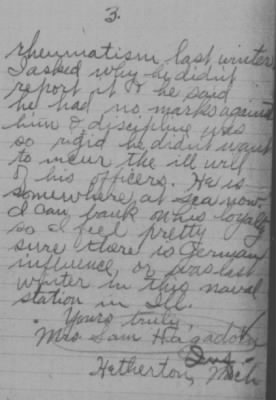 3.
rheumatism last winter
I asked why he didn't
report it & he said
he had no marks against
him & discipline was
so rigid he didn't want
to incur the ill will
of his officers. He is
somewhere at sea now.
I can bank on his loyalty
so I feel pretty
sure there is German
influence or was last
winter in this naval
station in Ill.
Yours truly,
Mrs Sam Hagadorn
Hetherton, Mich